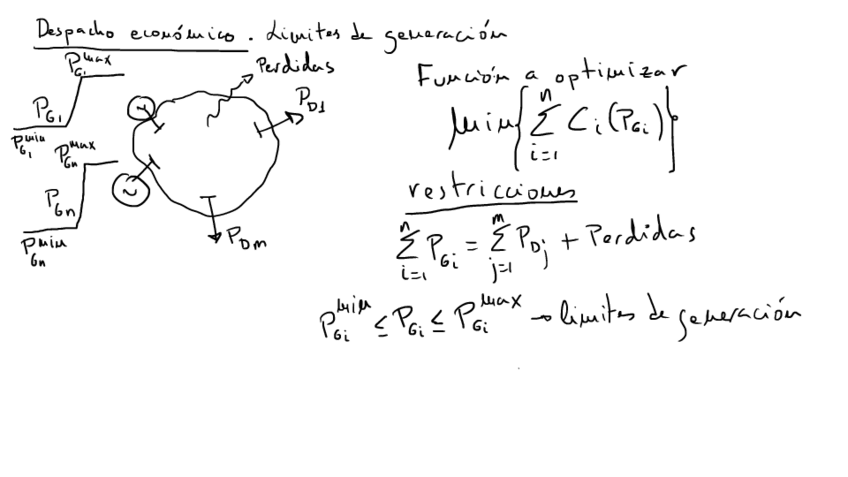 Despacho económico. Limites de generación
P_G1^max
P_G1
P_G1^min
P_Gn^max
P_Gn
P_Gn^min
~
~
Perdidas
P_D1
P_Dm
Función a optimizar
Min{∑_{i=1}^{n} C_i(P_Gi)}
restricciones
∑_{i=1}^{n} P_Gi = ∑_{j=1}^{m} P_Dj + Perdidas
P_Gi^min ≤ P_Gi ≤ P_Gi^max → limites de generación